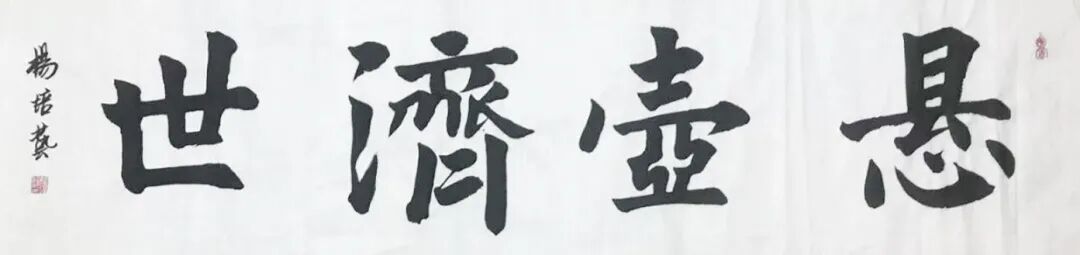 悬壺濟世
楊培藝